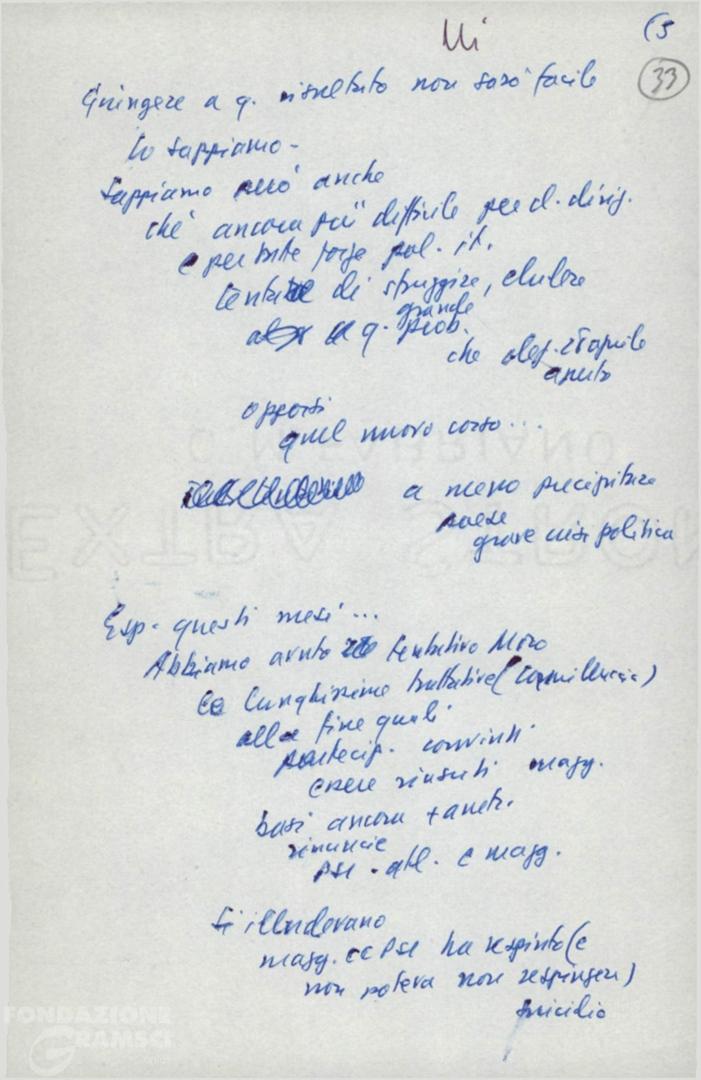 Mi
(5
33
Giungere a q. risultato non sarà facile
Lo sappiamo -
Sappiamo però anche
che ancora più difficile per d. dirig.
e per tutte forze pol. it.
tentare di sfuggire, eludere
a q. grande prob.
che elez. 28 aprile
aperto
opporsi
quel nuovo corso...
a meno precipitare
paese
grave crisi politica
Esp. questi mesi...
Abbiamo avuto tentativo Moro
Le lunghissime trattative (Camilluccia)
alla fine quali
partecip. convinti
essere riusciti magg.
basi ancora + arretr.
rinuncie
PSI. all. e magg.
Si illudevano
magg. CC PSI ha respinto (e
non poteva non respingere)
suicidio
EXTRA STRON
C. M. FABRIANO
FONDAZIONE
GRAMSCI